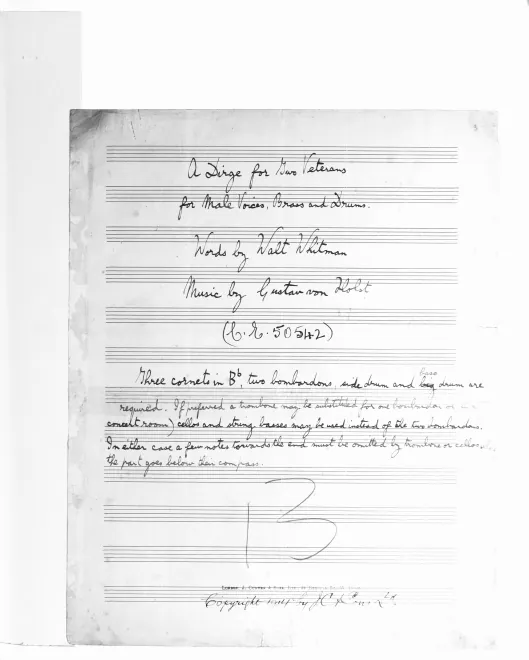 A Dirge for Two Veterans
for Male Voices, Brass and Drums.
Words by Walt Whitman
Music by Gustav von Holst
(C.E. 50542)
bass
Three cornets in B♭, two bombardons, side drum and big drum are
required. If preferred a trombone may be substituted for one bombardon or
concert room) cellos and string basses may be used instead of the two bombardons.
In either case a few notes towards the end must be omitted by trombone or cellos
the part goes below their compass.
B
Copyright by